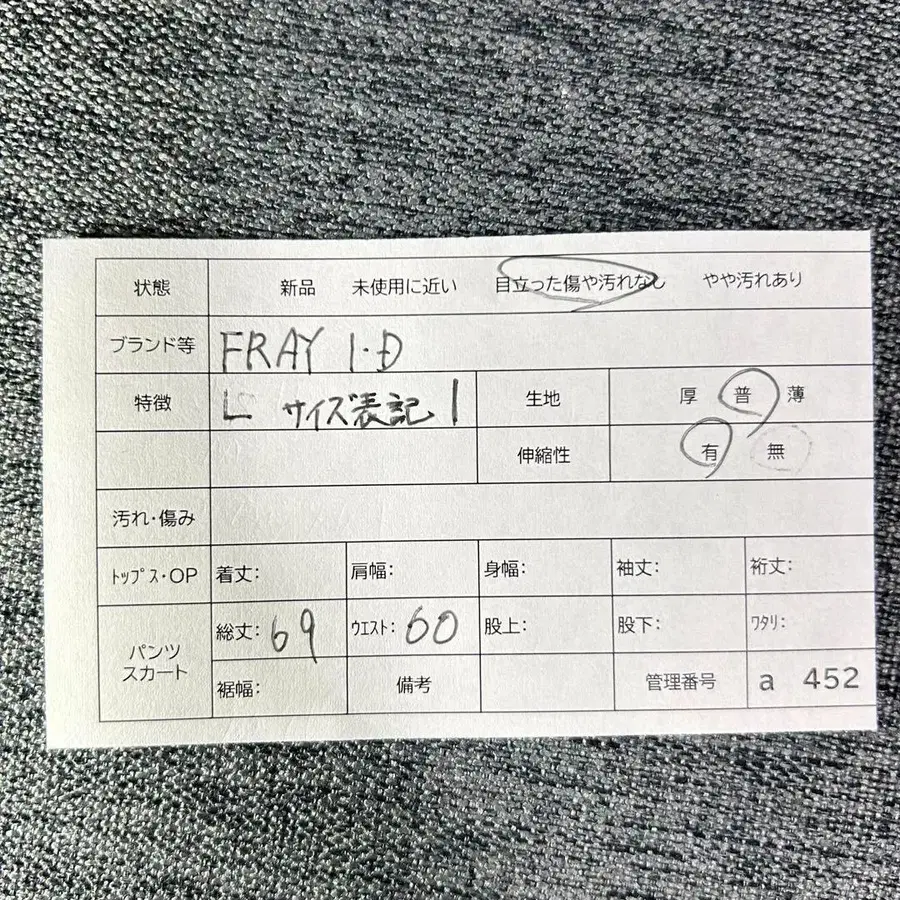 状態 新品 未使用に近い 目立った傷や汚れなし やや汚れあり
ブランド等 FRAY I・D
特徴 L サイズ表記 1 生地 厚 普 薄
伸縮性 有 無
汚れ・傷み
ﾄｯﾌﾟｽ・OP 着丈: 肩幅: 身幅: 袖丈: 裄丈:
パンツ スカート 総丈: 69 ｳｴｽﾄ: 60 股上: 股下: ﾜﾀﾘ:
裾幅: 備考 管理番号 a 452